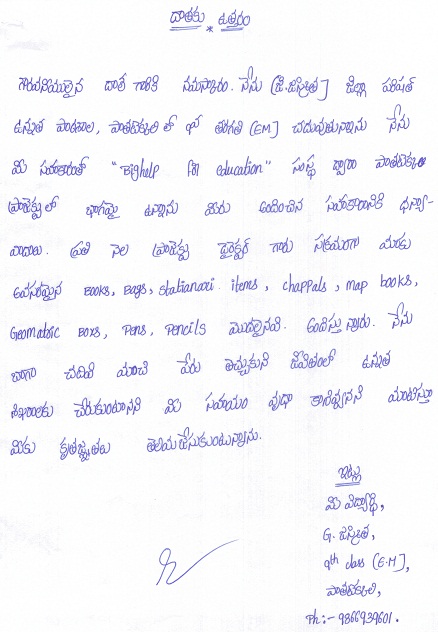 దాతకు ఉత్తరం
గౌరవనీయులైన దాత గారికి నమస్కారం. నేను [జి. జస్మిత] జిల్లా పరిషత్
ఉన్నత పాఠశాల, పాతటెక్కలి లో 9వ తరగతి [EM] చదువుతున్నాను నేను
మీ సహకారంతో "Bighelp for education" సంస్థ ద్వారా పాతటెక్కలి
ప్రాజెక్టులో భాగమై ఉన్నాను మీరు అందించిన సహకారానికి ధన్య-
వాదాలు. ప్రతి నెల ప్రాజెక్టు డైరెక్టర్ గారు సక్రమంగా మాకు
అవసరమైన Books, Bags, Stationari items, chappals, map books,
Geomatric Boxs, Pens, Pencils మొదలైనవి. అందిస్తున్నారు. నేను
బాగా చదివి మంచి పేరు తెచ్చుకుని జీవితంలో ఉన్నత
శిఖరాలకు చేరుకుంటానని మీ సహాయం వృధా కానివ్వనని మాటిస్తూ
మీకు కృతజ్ఞతలు తెలియజేసుకుంటున్నాను.
ఇట్లు
మీ విద్యార్థి,
G. జస్మిత,
9th class [E.M],
పాతటెక్కలి,
Ph:- 9866939601.